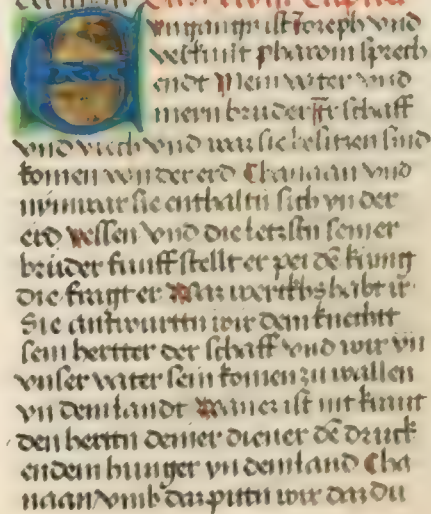 Eingangen ist Joseph vnd
verkunt pharoni sprech
endt Mein vater vnd
mein bruder Ir schaff
vnd viech vnd was sie besitzen sind
komen von der erd Chanaan vnd
nÿmwar sie enthaltn sich yn der
erd yessen vnd die letzstn seiner
brüder funff stellt er pei dē kunig
die fragt er Was werkhs habt ir
Sie antwurttn wir dein knecht
sein hertter der schaff vnd wir vn
vnser vater sein komen zu wallen
yn dem landt Wan es ist nit kraut
den herttn deiner diener dē druck
endem hunger yn dem land Cha
naan vmb das pittn wir das du